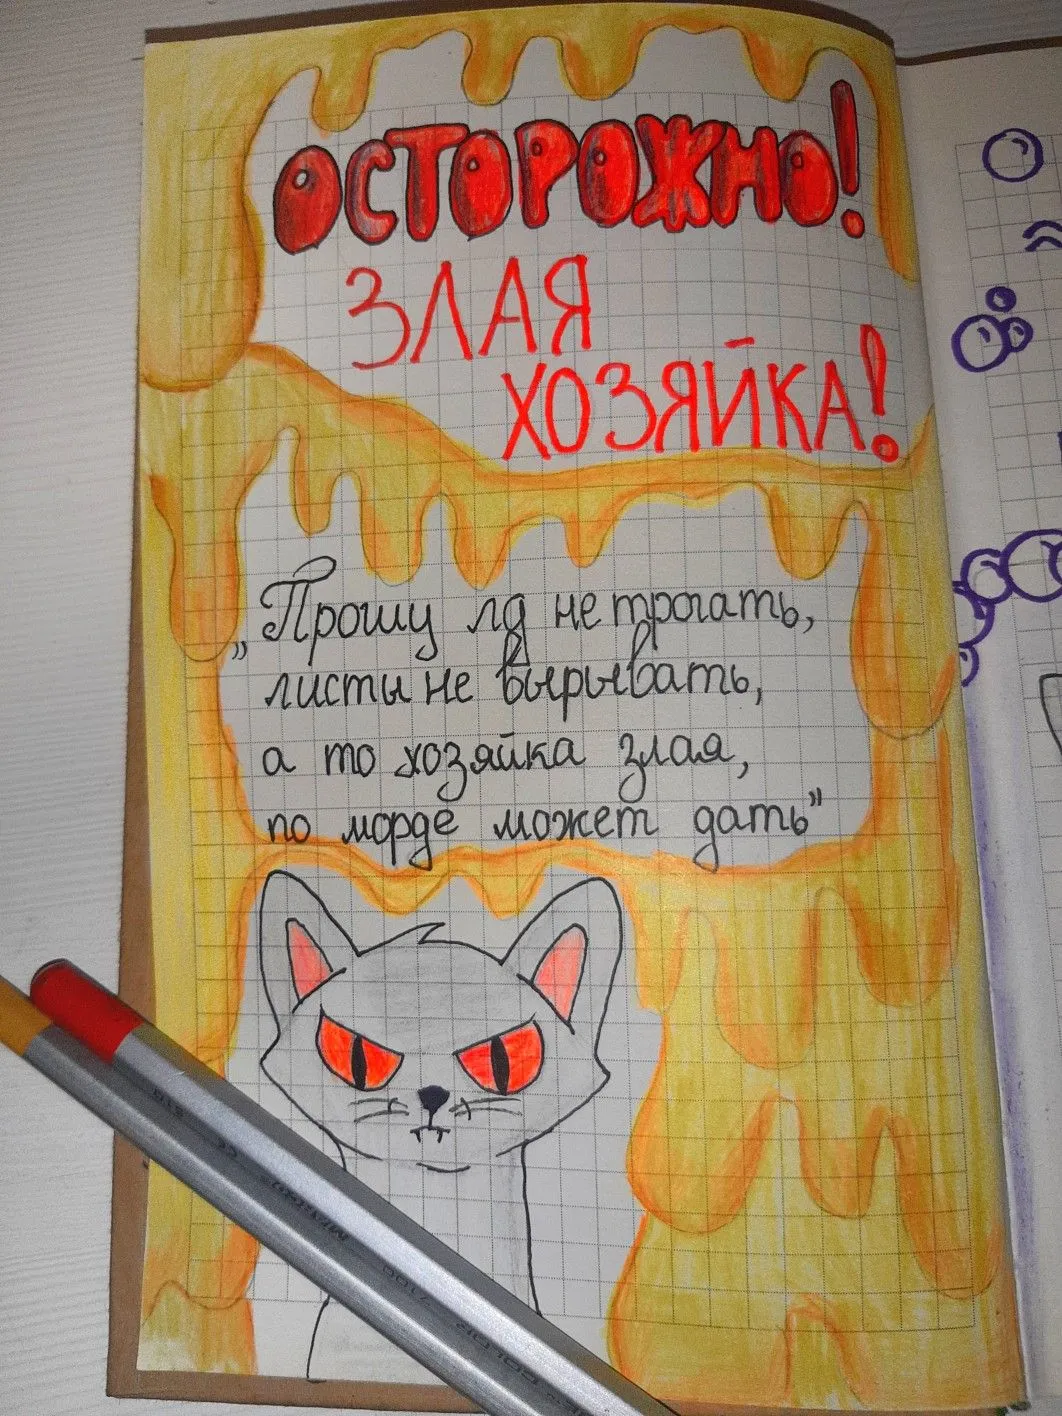 ОСТОРОЖНО!
ЗЛАЯ
ХОЗЯЙКА!
„Прошу лд не трогать,
листы не вырывать,
а то хозяйка злая,
по морде может дать”